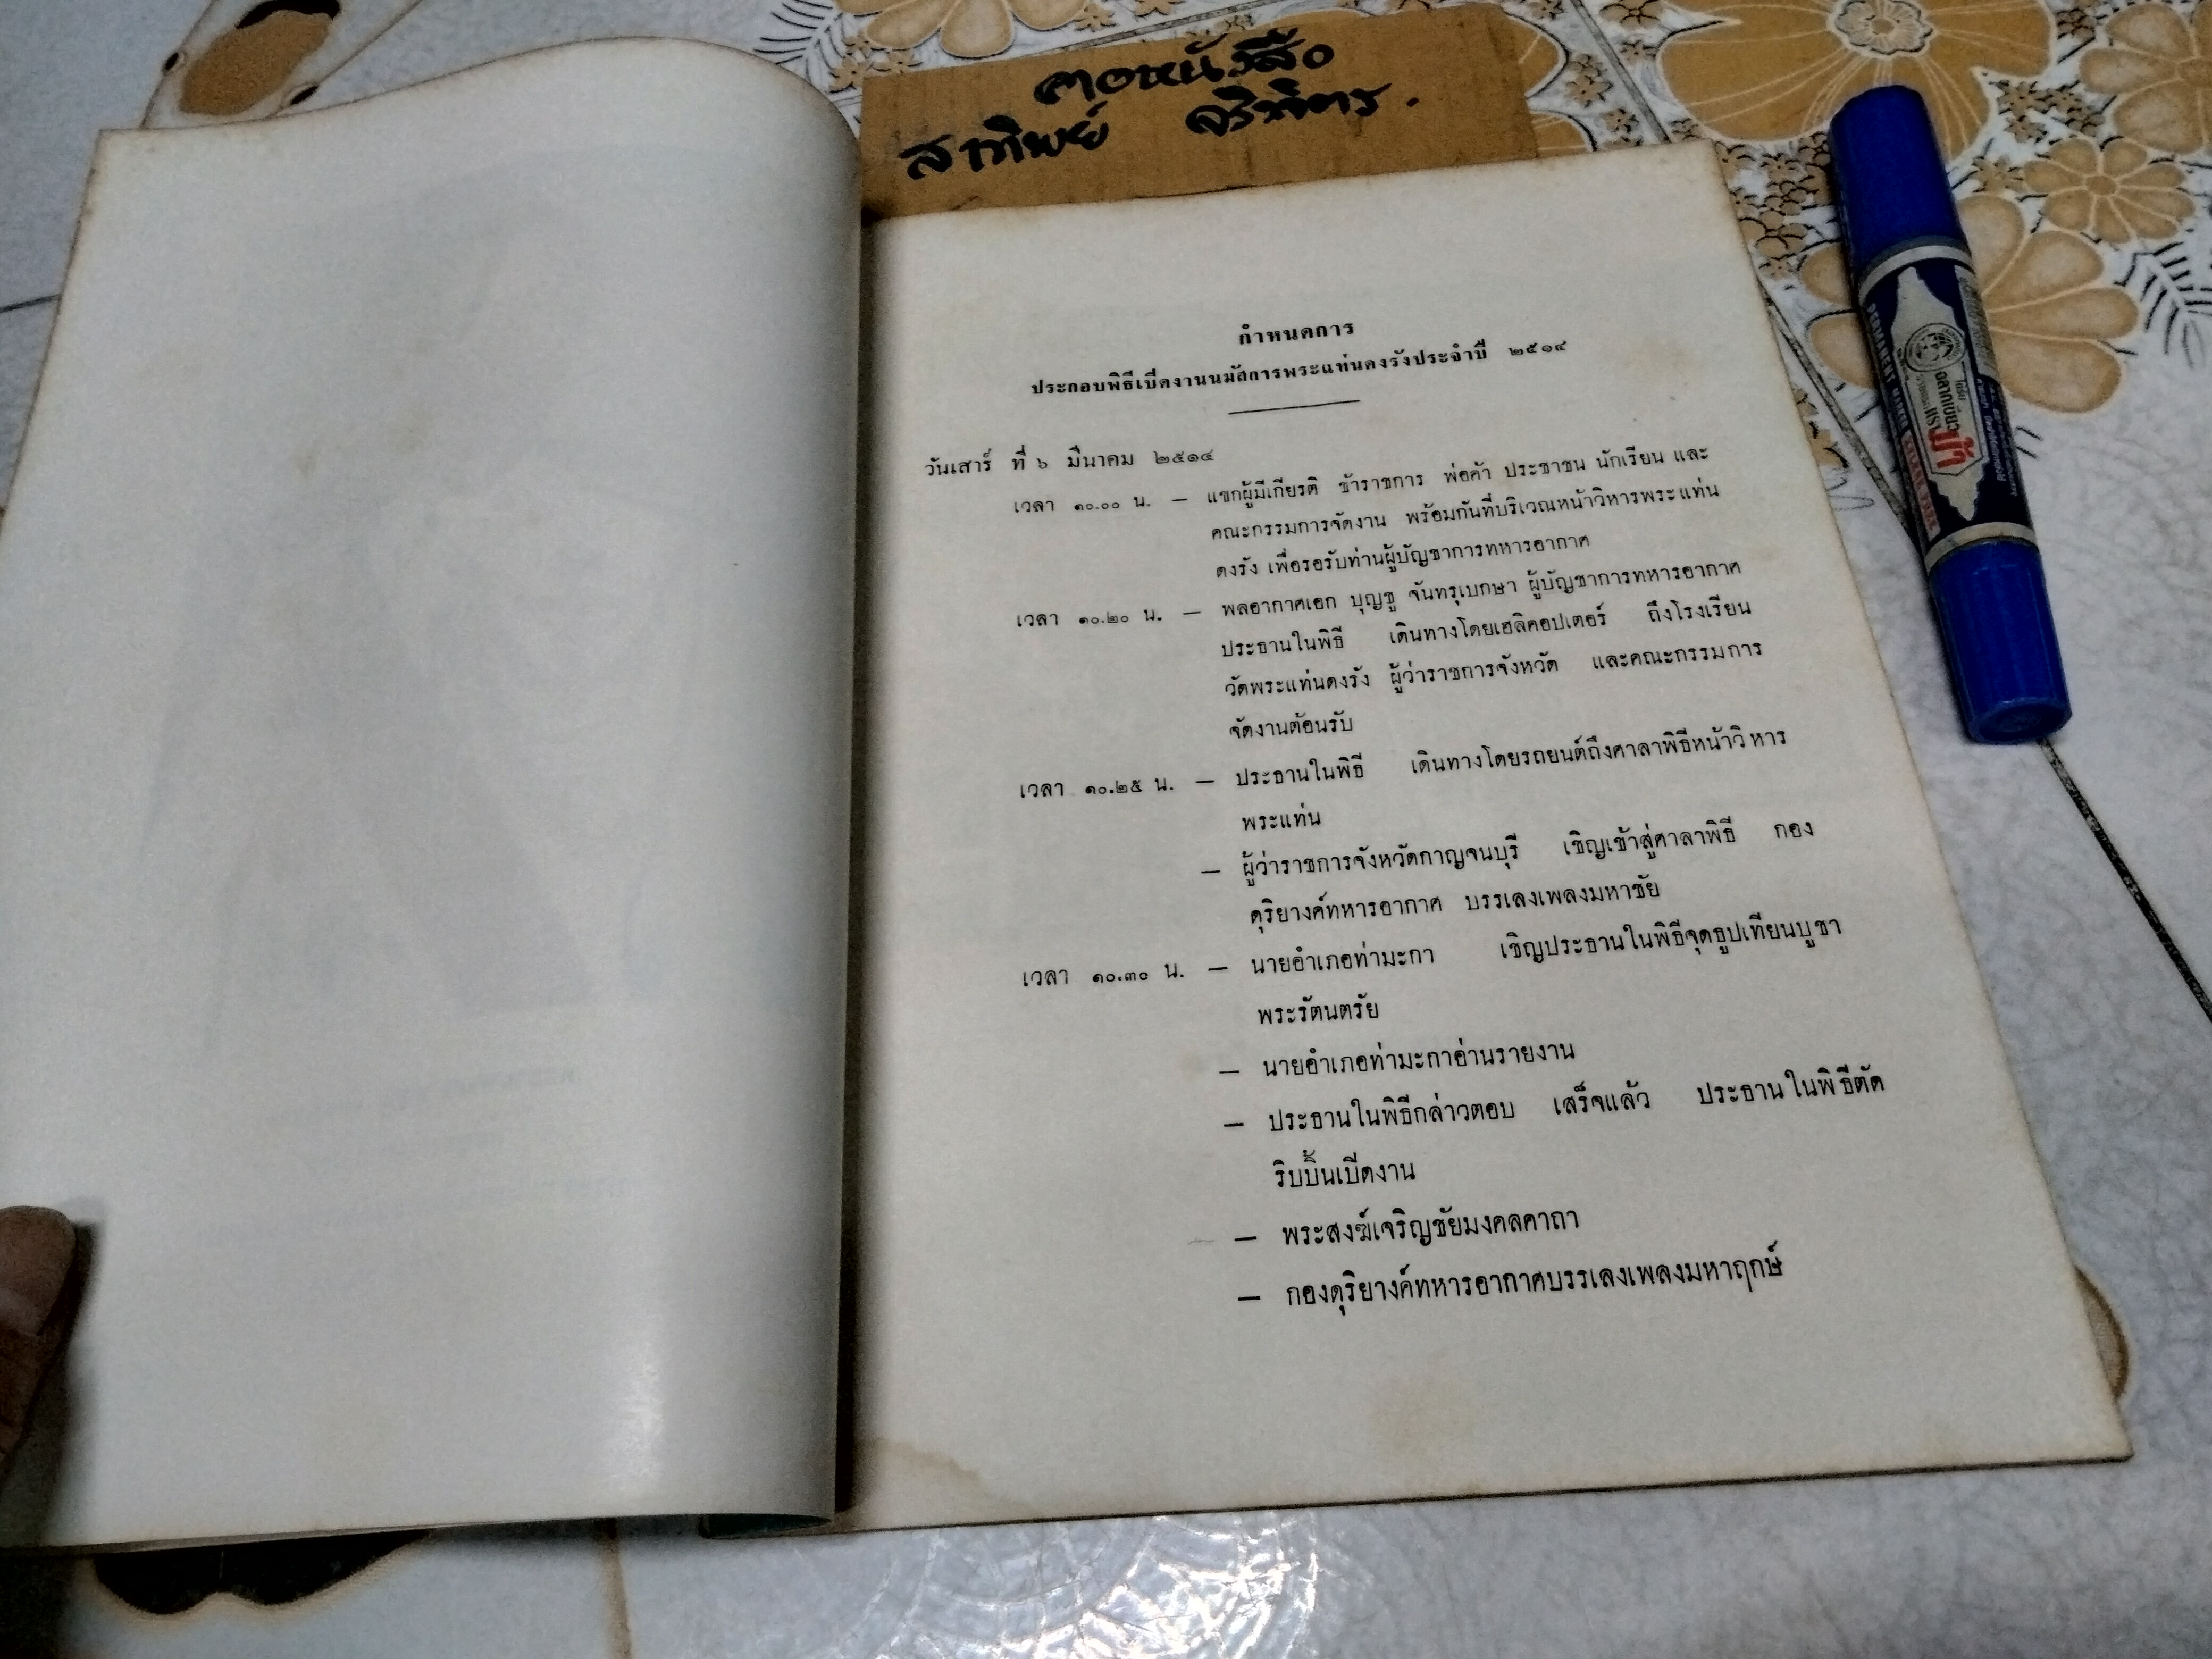 คอหนังสือ
สาทิพย์
กำหนดการ
ประกอบพิธีเปิดงานนมัสการพระแท่นดงรังประจำปี ๒๕๑๔
วันเสาร์ ที่ ๖ มีนาคม ๒๕๑๔
เวลา ๑๐.๐๐ น. — แขกผู้มีเกียรติ ข้าราชการ พ่อค้า ประชาชน นักเรียน และ
คณะกรรมการจัดงาน พร้อมกันที่บริเวณหน้าวิหารพระแท่น
ดงรัง เพื่อรอรับท่านผู้บัญชาการทหารอากาศ
เวลา ๑๐.๒๐ น. — พลอากาศเอก บุญชู จันทรุเบกษา ผู้บัญชาการทหารอากาศ
ประธานในพิธี เดินทางโดยเฮลิคอปเตอร์ ถึงโรงเรียน
วัดพระแท่นดงรัง ผู้ว่าราชการจังหวัด และคณะกรรมการ
จัดงานต้อนรับ
เวลา ๑๐.๒๕ น. — ประธานในพิธี เดินทางโดยรถยนต์ถึงศาลาพิธีหน้าวิหาร
พระแท่น
— ผู้ว่าราชการจังหวัดกาญจนบุรี เชิญเข้าสู่ศาลาพิธี กอง
ดุริยางค์ทหารอากาศ บรรเลงเพลงมหาชัย
เวลา ๑๐.๓๐ น. — นายอำเภอท่ามะกา เชิญประธานในพิธีจุดธูปเทียนบูชา
พระรัตนตรัย
— นายอำเภอท่ามะกาอ่านรายงาน
— ประธานในพิธีกล่าวตอบ เสร็จแล้ว ประธานในพิธีตัด
ริบบิ้นเปิดงาน
— พระสงฆ์เจริญชัยมงคลคาถา
— กองดุริยางค์ทหารอากาศบรรเลงเพลงมหาฤกษ์
PERMANENT MARKER
ฉลากเขียว
ตราม้า